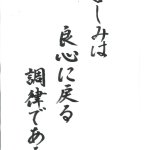 しみは
良心に戻る
調律であ